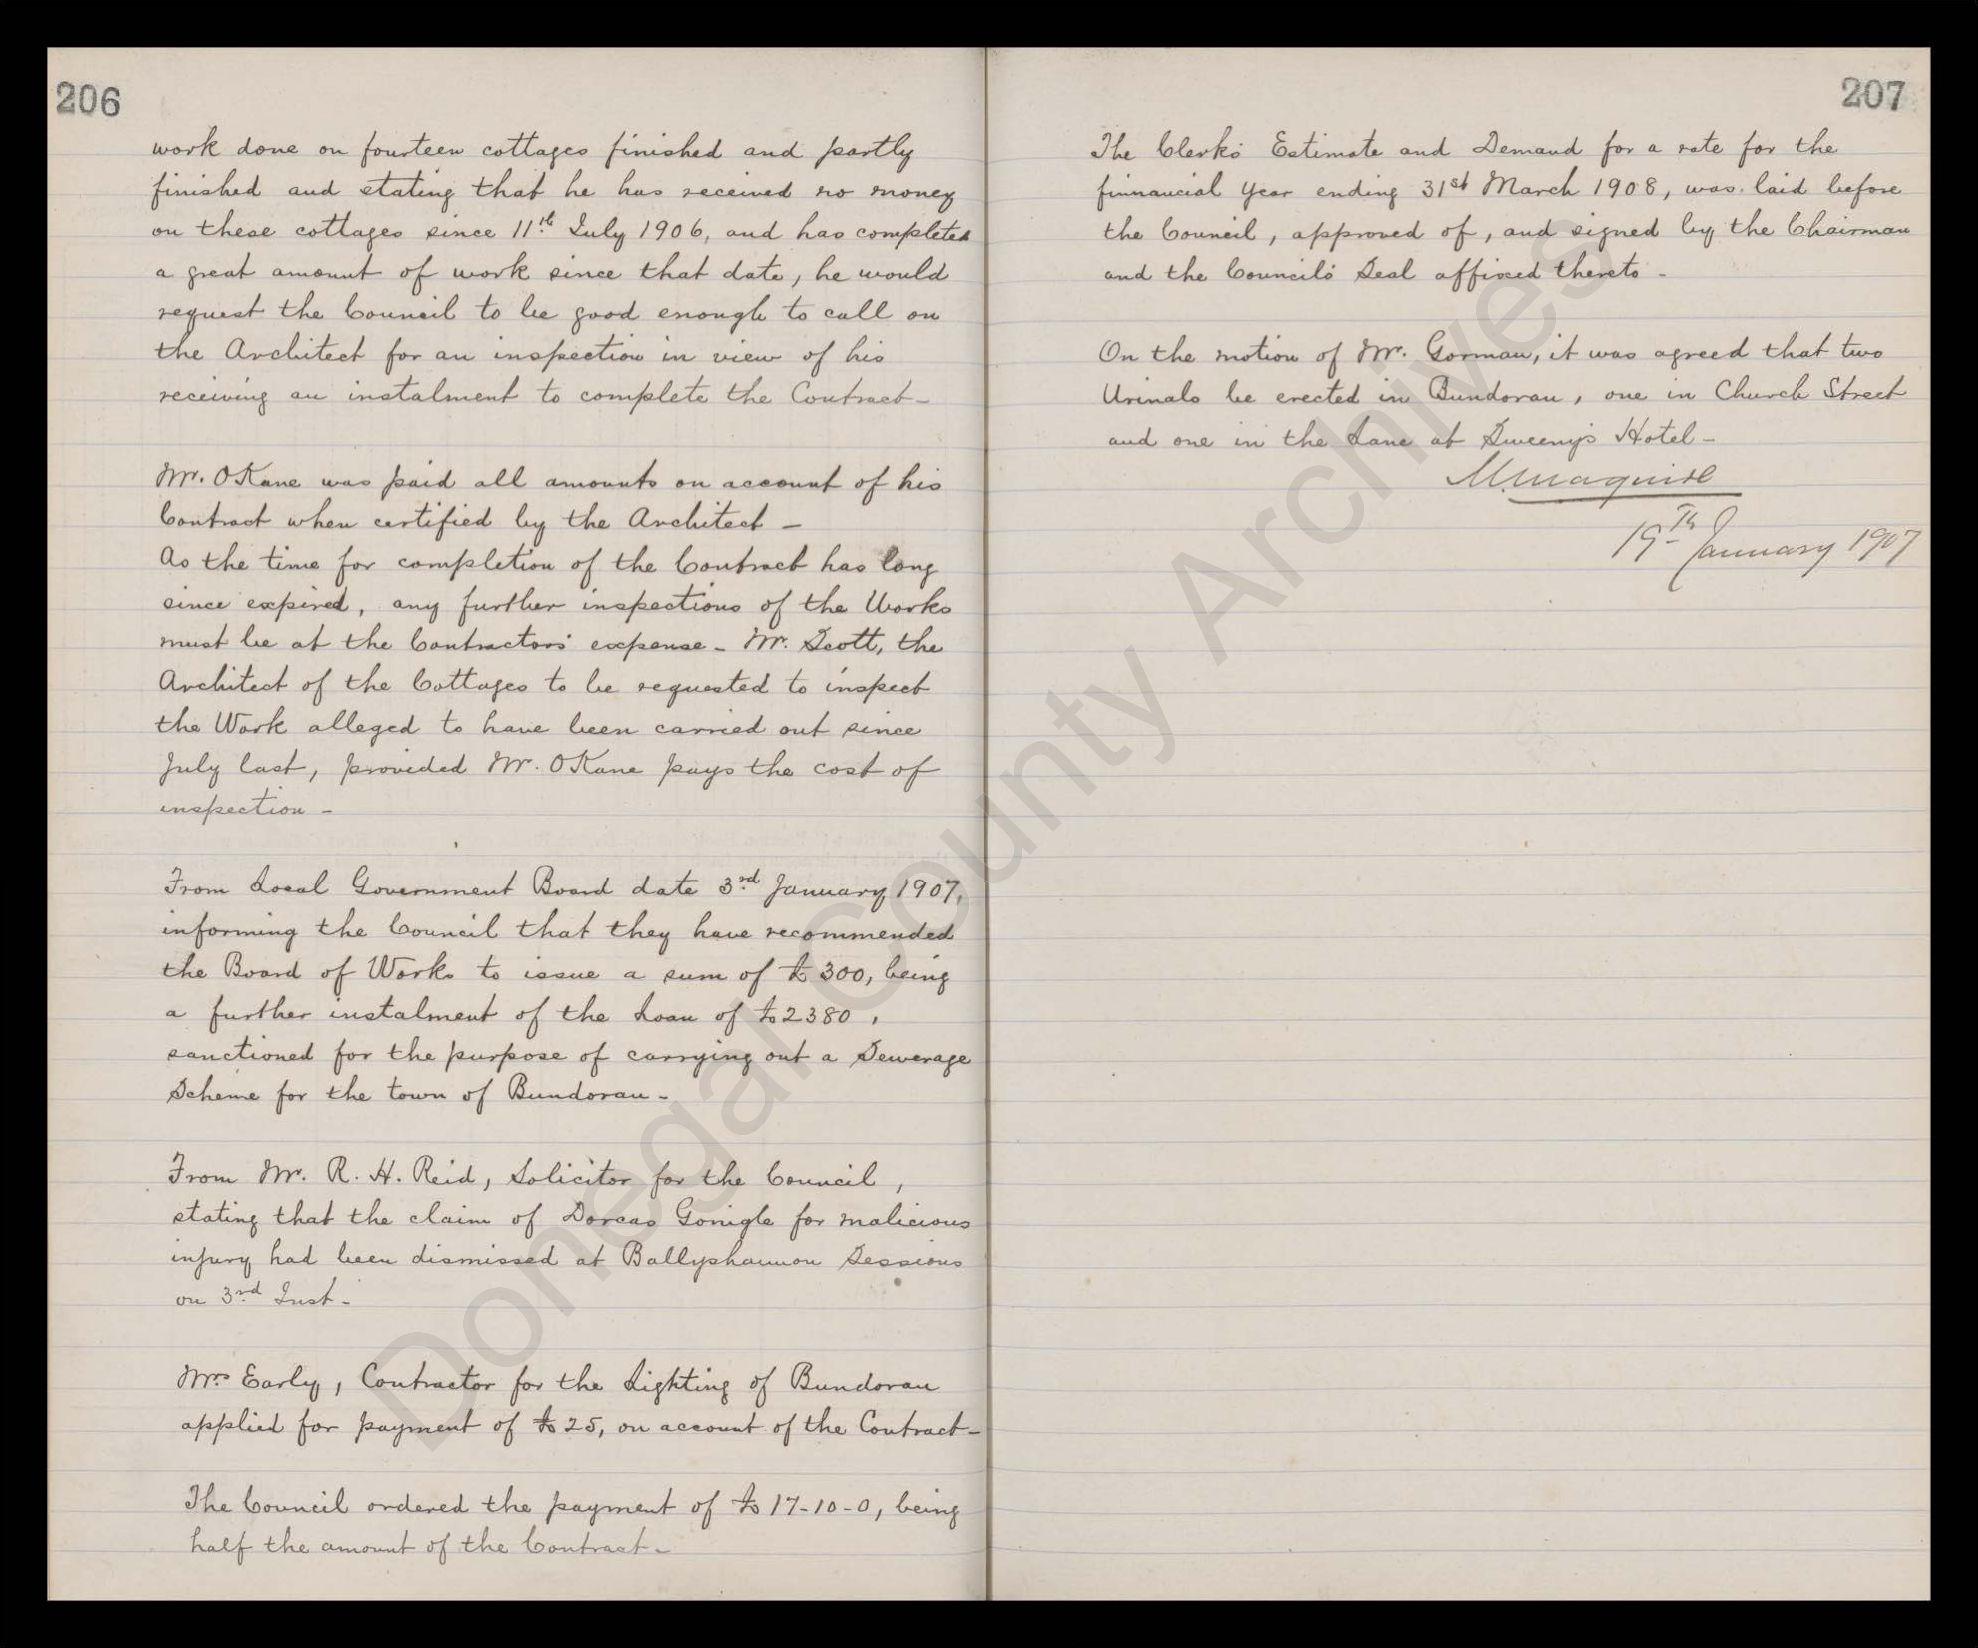 206
work done on fourteen cottages finished and partly
finished and stating that he has received no money
on these cottages since 11th July 1906, and has completed
a great amount of work since that date, he would
request the Council to be good enough to call on
the Architect for an inspection in view of his
receiving an instalment to complete the Contract -
Mr. O'Kane was paid all amounts on account of his
Contract when certified by the Architect -
As the time for completion of the Contract has long
since expired, any further inspections of the Works
must be at the Contractors' expense - Mr. Scott, the
Architect of the Cottages to be requested to inspect
the Work alleged to have been carried out since
July last, provided Mr. O'Kane pays the cost of
inspection -
From Local Government Board date 3rd January 1907,
informing the Council that they have recommended
the Board of Works to issue a sum of £300, being
a further instalment of the Loan of £2380,
sanctioned for the purpose of carrying out a Sewerage
Scheme for the town of Bundoran -
From Mr. R. H. Reid, Solicitor for the Council,
stating that the claim of Dorcas Gonigle for malicious
injury had been dismissed at Ballyshannon Sessions
on 3rd Inst -
Mrs Early, Contractor for the Lighting of Bundoran
applied for payment of £25, on account of the Contract -
The Council ordered the payment of £17-10-0, being
half the amount of the Contract -
207
The Clerk's Estimate and Demand for a rate for the
finnancial Year ending 31st March 1908, was laid before
the Council, approved of, and signed by the Chairman
and the Council's Seal affixed thereto -
On the motion of Mr. Gorman, it was agreed that two
Urinals be erected in Bundoran, one in Church Street
and one in the Lane at Sweeny's Hotel -
M. Maguire
19th January 1907
Donegal County Archives